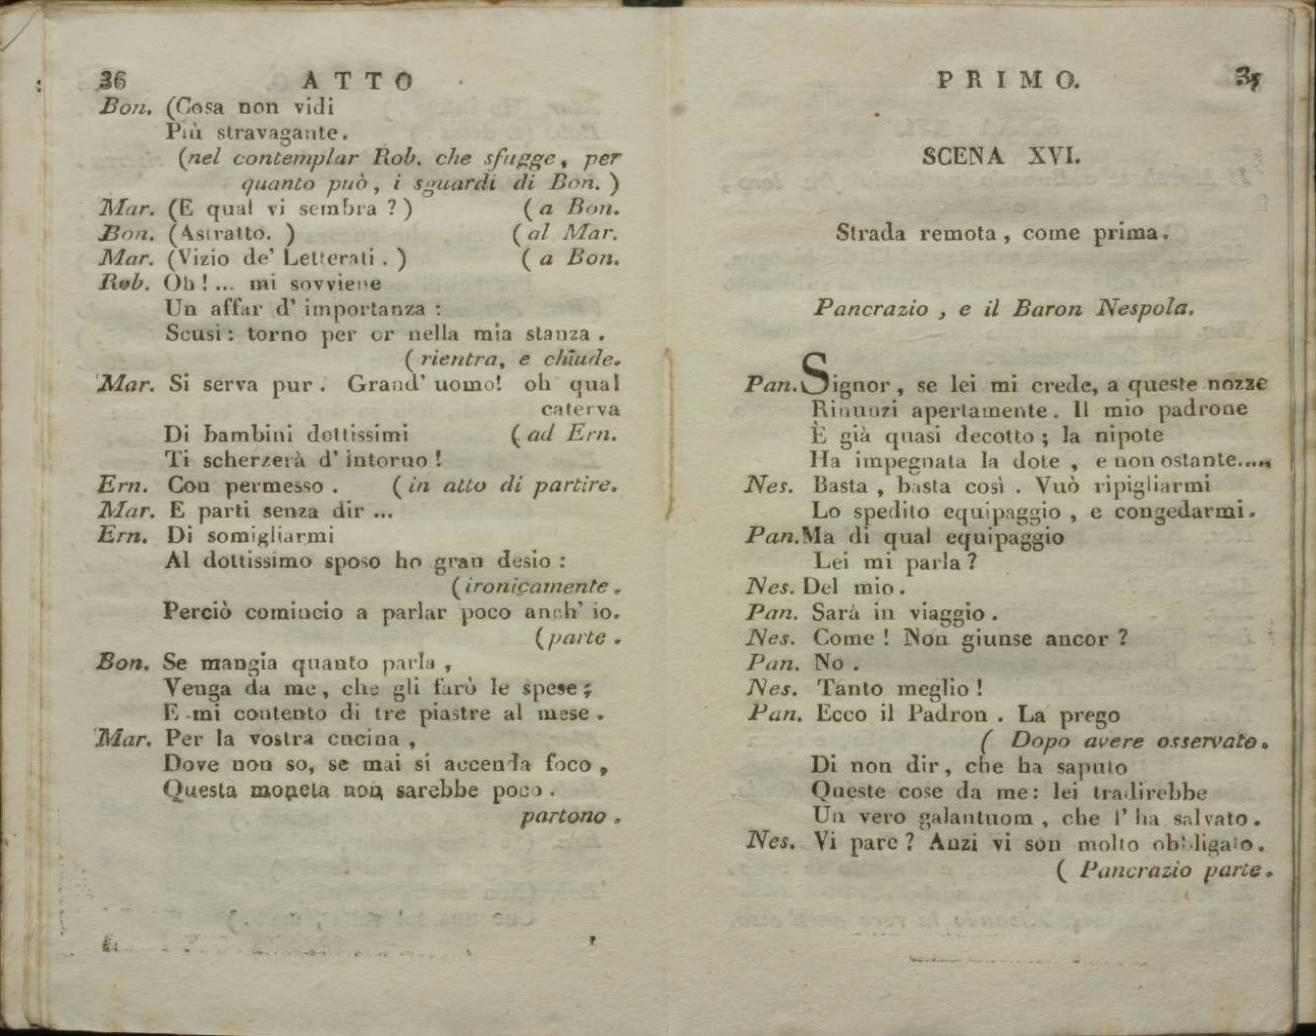 36 ATTO
Bon. (Cosa non vidi
Più stravagante.
(nel contemplar Rob. che sfugge, per
quanto può, i sguardi di Bon. )
Mar. (E qual vi sembra ? ) ( a Bon.
Bon. (Astratto. ) ( al Mar.
Mar. (Vizio de' Letterati . ) ( a Bon.
Rob. Oh ! ... mi sovviene
Un affar d' importanza :
Scusi : torno per or nella mia stanza .
( rientra, e chiude.
Mar. Si serva pur . Grand' uomo! oh qual
caterva
Di bambini dottissimi ( ad Ern.
Ti scherzerà d' intorno !
Ern. Con permesso . ( in atto di partire.
Mar. E parti senza dir ...
Ern. Di somigliarmi
Al dottissimo sposo ho gran desio :
( ironicamente .
Perciò comincio a parlar poco anch' io.
(parte .
Bon. Se mangia quanto parla ,
Venga da me, che gli farò le spese ;
E mi contento di tre piastre al mese .
Mar. Per la vostra cucina ,
Dove non so, se mai si accenda foco ,
Questa moneta non sarebbe poco .
partono .
PRIMO.
SCENA XVI.
Strada remota , come prima .
Pancrazio , e il Baron Nespola.
Pan. Signor , se lei mi crede, a queste nozze
Rinunzi apertamente . Il mio padrone
È già quasi decotto ; la nipote
Ha impegnata la dote , e non ostante.....
Nes. Basta , basta così . Vuò ripigliarmi
Lo spedito equipaggio , e congedarmi .
Pan. Ma di qual equipaggio
Lei mi parla ?
Nes. Del mio .
Pan. Sarà in viaggio .
Nes. Come ! Non giunse ancor ?
Pan. No .
Nes. Tanto meglio !
Pan. Ecco il Padron . La prego
( Dopo avere osservato .
Di non dir , che ha saputo
Queste cose da me : lei tradirebbe
Un vero galantuom , che l' ha salvato .
Nes. Vi pare ? Anzi vi son molto obbligato .
( Pancrazio parte .